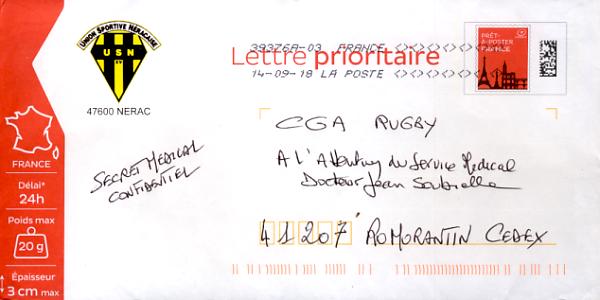 UNION SPORTIVE NERACAISE
USN
XV
47600 NERAC
Lettre prioritaire
39376A-03 FRANCE
14-09-18 LA POSTE
PRÊT-
À-POSTER
FRANCE
FRANCE
Délai*
24h
Poids max
20 g
Épaisseur
3 cm max
SECRET MEDICAL
CONFIDENTIEL
CGA RUGBY
A l'Attention du Service Medical
Docteur Jean Soubielle
41207 ROMORANTIN CEDEX